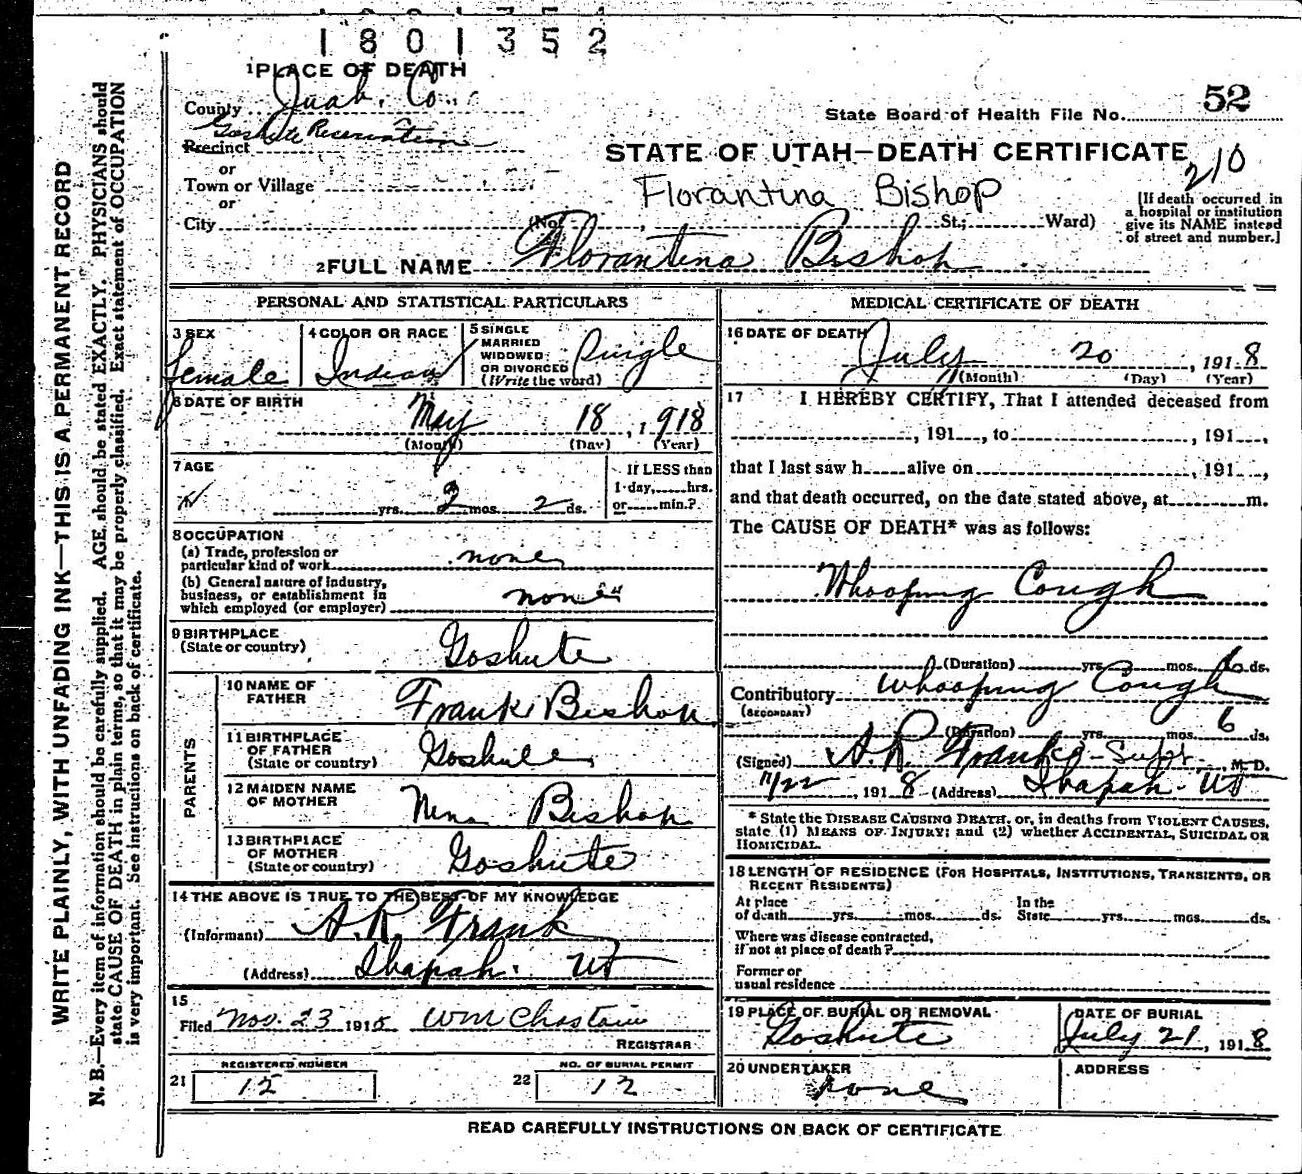 1801352
1 PLACE OF DEATH
County Juab. Co.
Goshute Reservation
Precinct
or
Town or Village
or
City (No. St.; Ward)
State Board of Health File No. 52
STATE OF UTAH—DEATH CERTIFICATE
210
Florantina Bishop
[If death occurred in
a hospital or institution
give its NAME instead
of street and number.]
2 FULL NAME Florantina Bishop
PERSONAL AND STATISTICAL PARTICULARS
3 SEX
female
4 COLOR OR RACE
Indian
5 SINGLE
MARRIED
WIDOWED
OR DIVORCED
(Write the word)
Single
6 DATE OF BIRTH
May 18, 1918
(Month) (Day) (Year)
7 AGE
yrs. 2 mos. 2 ds.
If LESS than
1 day, hrs.
or min.?
8 OCCUPATION
(a) Trade, profession or
particular kind of work none
(b) General nature of industry,
business, or establishment in
which employed (or employer) none
9 BIRTHPLACE
(State or country) Goshute
PARENTS
10 NAME OF
FATHER Frank Bishop
11 BIRTHPLACE
OF FATHER
(State or country) Goshute
12 MAIDEN NAME
OF MOTHER Nena Bishop
13 BIRTHPLACE
OF MOTHER
(State or country) Goshute
14 THE ABOVE IS TRUE TO THE BEST OF MY KNOWLEDGE
(Informant) A.R. Frank
(Address) Ibapah. UT
15
Filed Nov. 23 1918 Wm Chastain
REGISTRAR
REGISTERED NUMBER
21 12
NO. OF BURIAL PERMIT
22 12
MEDICAL CERTIFICATE OF DEATH
16 DATE OF DEATH
July 20, 1918
(Month) (Day) (Year)
17 I HEREBY CERTIFY, That I attended deceased from
, 191 , to , 191 ,
that I last saw h alive on , 191 ,
and that death occurred, on the date stated above, at m.
The CAUSE OF DEATH* was as follows:
Whooping Cough
(Duration) yrs. mos. 6 ds.
Contributory Whooping Cough
(SECONDARY)
(Duration) yrs. mos. 6 ds.
(Signed) A.R. Frank - Supt. M. D.
7/22, 1918 (Address) Ibapah - UT
* State the DISEASE CAUSING DEATH, or, in deaths from VIOLENT CAUSES,
state (1) MEANS OF INJURY; and (2) whether ACCIDENTAL, SUICIDAL OR
HOMICIDAL.
18 LENGTH OF RESIDENCE (FOR HOSPITALS, INSTITUTIONS, TRANSIENTS, OR
RECENT RESIDENTS)
At place
of death yrs. mos. ds.
In the
State yrs. mos. ds.
Where was disease contracted,
if not at place of death?
Former or
usual residence
19 PLACE OF BURIAL OR REMOVAL
Goshute
DATE OF BURIAL
July 21, 1918
20 UNDERTAKER
none
ADDRESS
READ CAREFULLY INSTRUCTIONS ON BACK OF CERTIFICATE
WRITE PLAINLY, WITH UNFADING INK—THIS IS A PERMANENT RECORD
N. B.—Every item of information should be carefully supplied. AGE should be stated EXACTLY. PHYSICIANS should
state CAUSE OF DEATH in plain terms, so that it may be properly classified. Exact statement of OCCUPATION
is very important. See instructions on back of certificate.